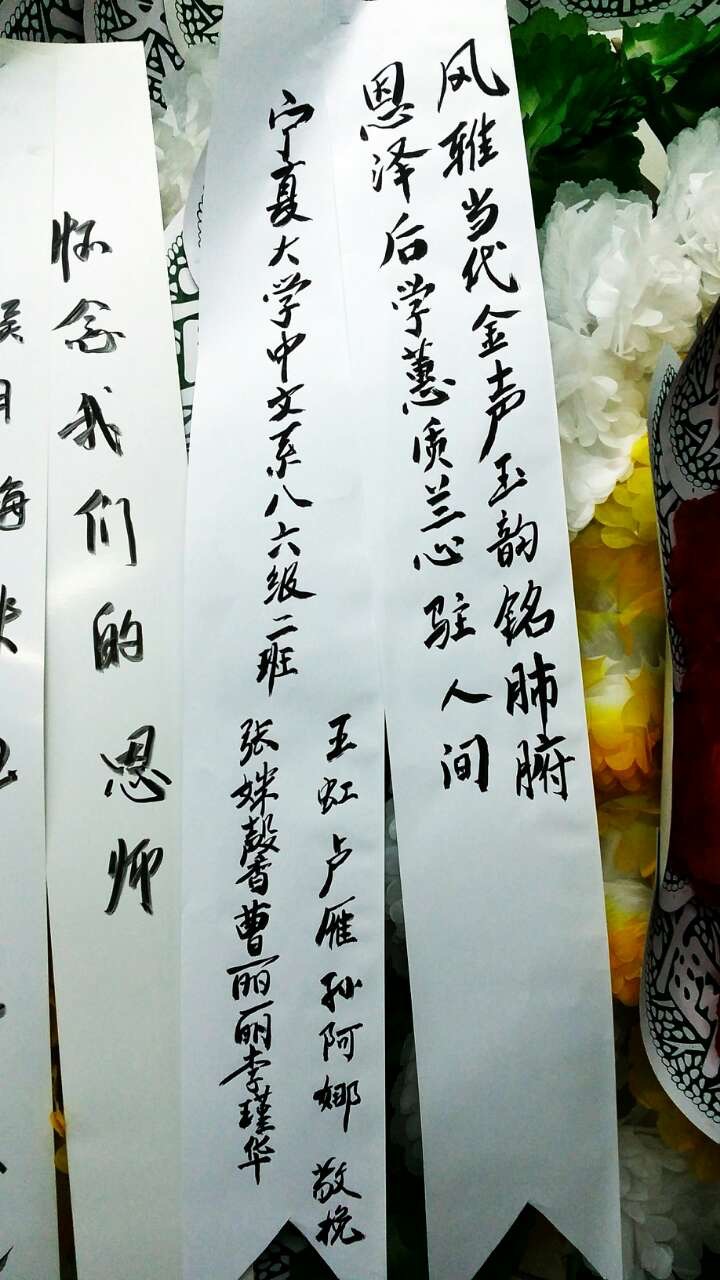 风雅当代金声玉韵铭肺腑
恩泽后学蕙质兰心驻人间
宁夏大学中文系八六级二班
王虹 卢雁 孙阿娜 敬挽
张姝馨 曹丽丽 李瑾华
怀念我们的恩师